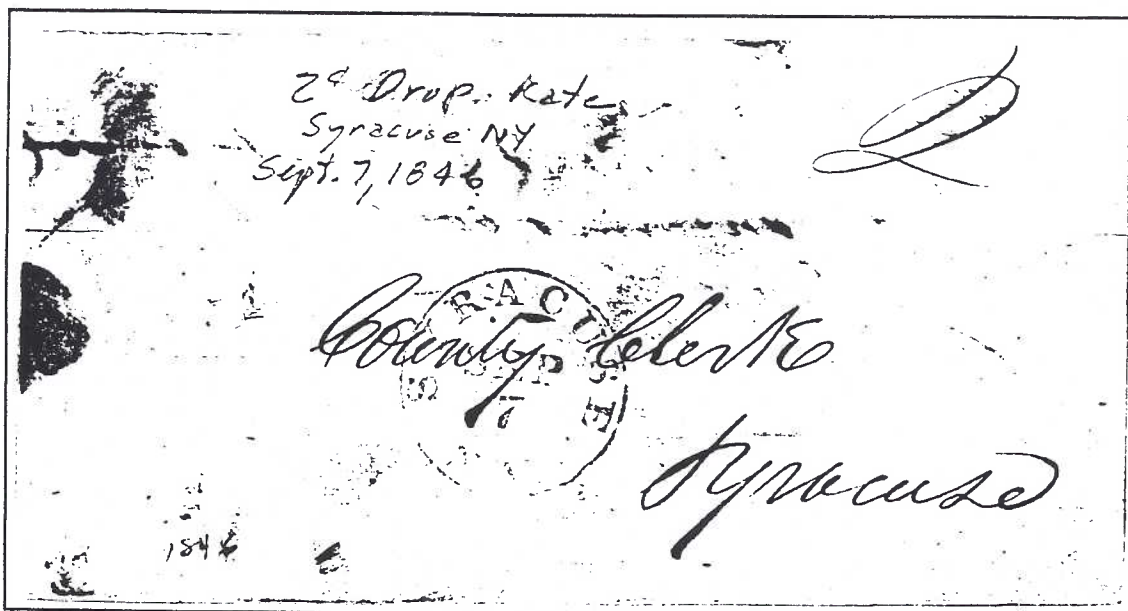 2¢ Drop. Rate
Syracuse NY
Sept. 7, 1846
2
SYRACUSE
SEP
7
County Clerk
Syracuse
1846